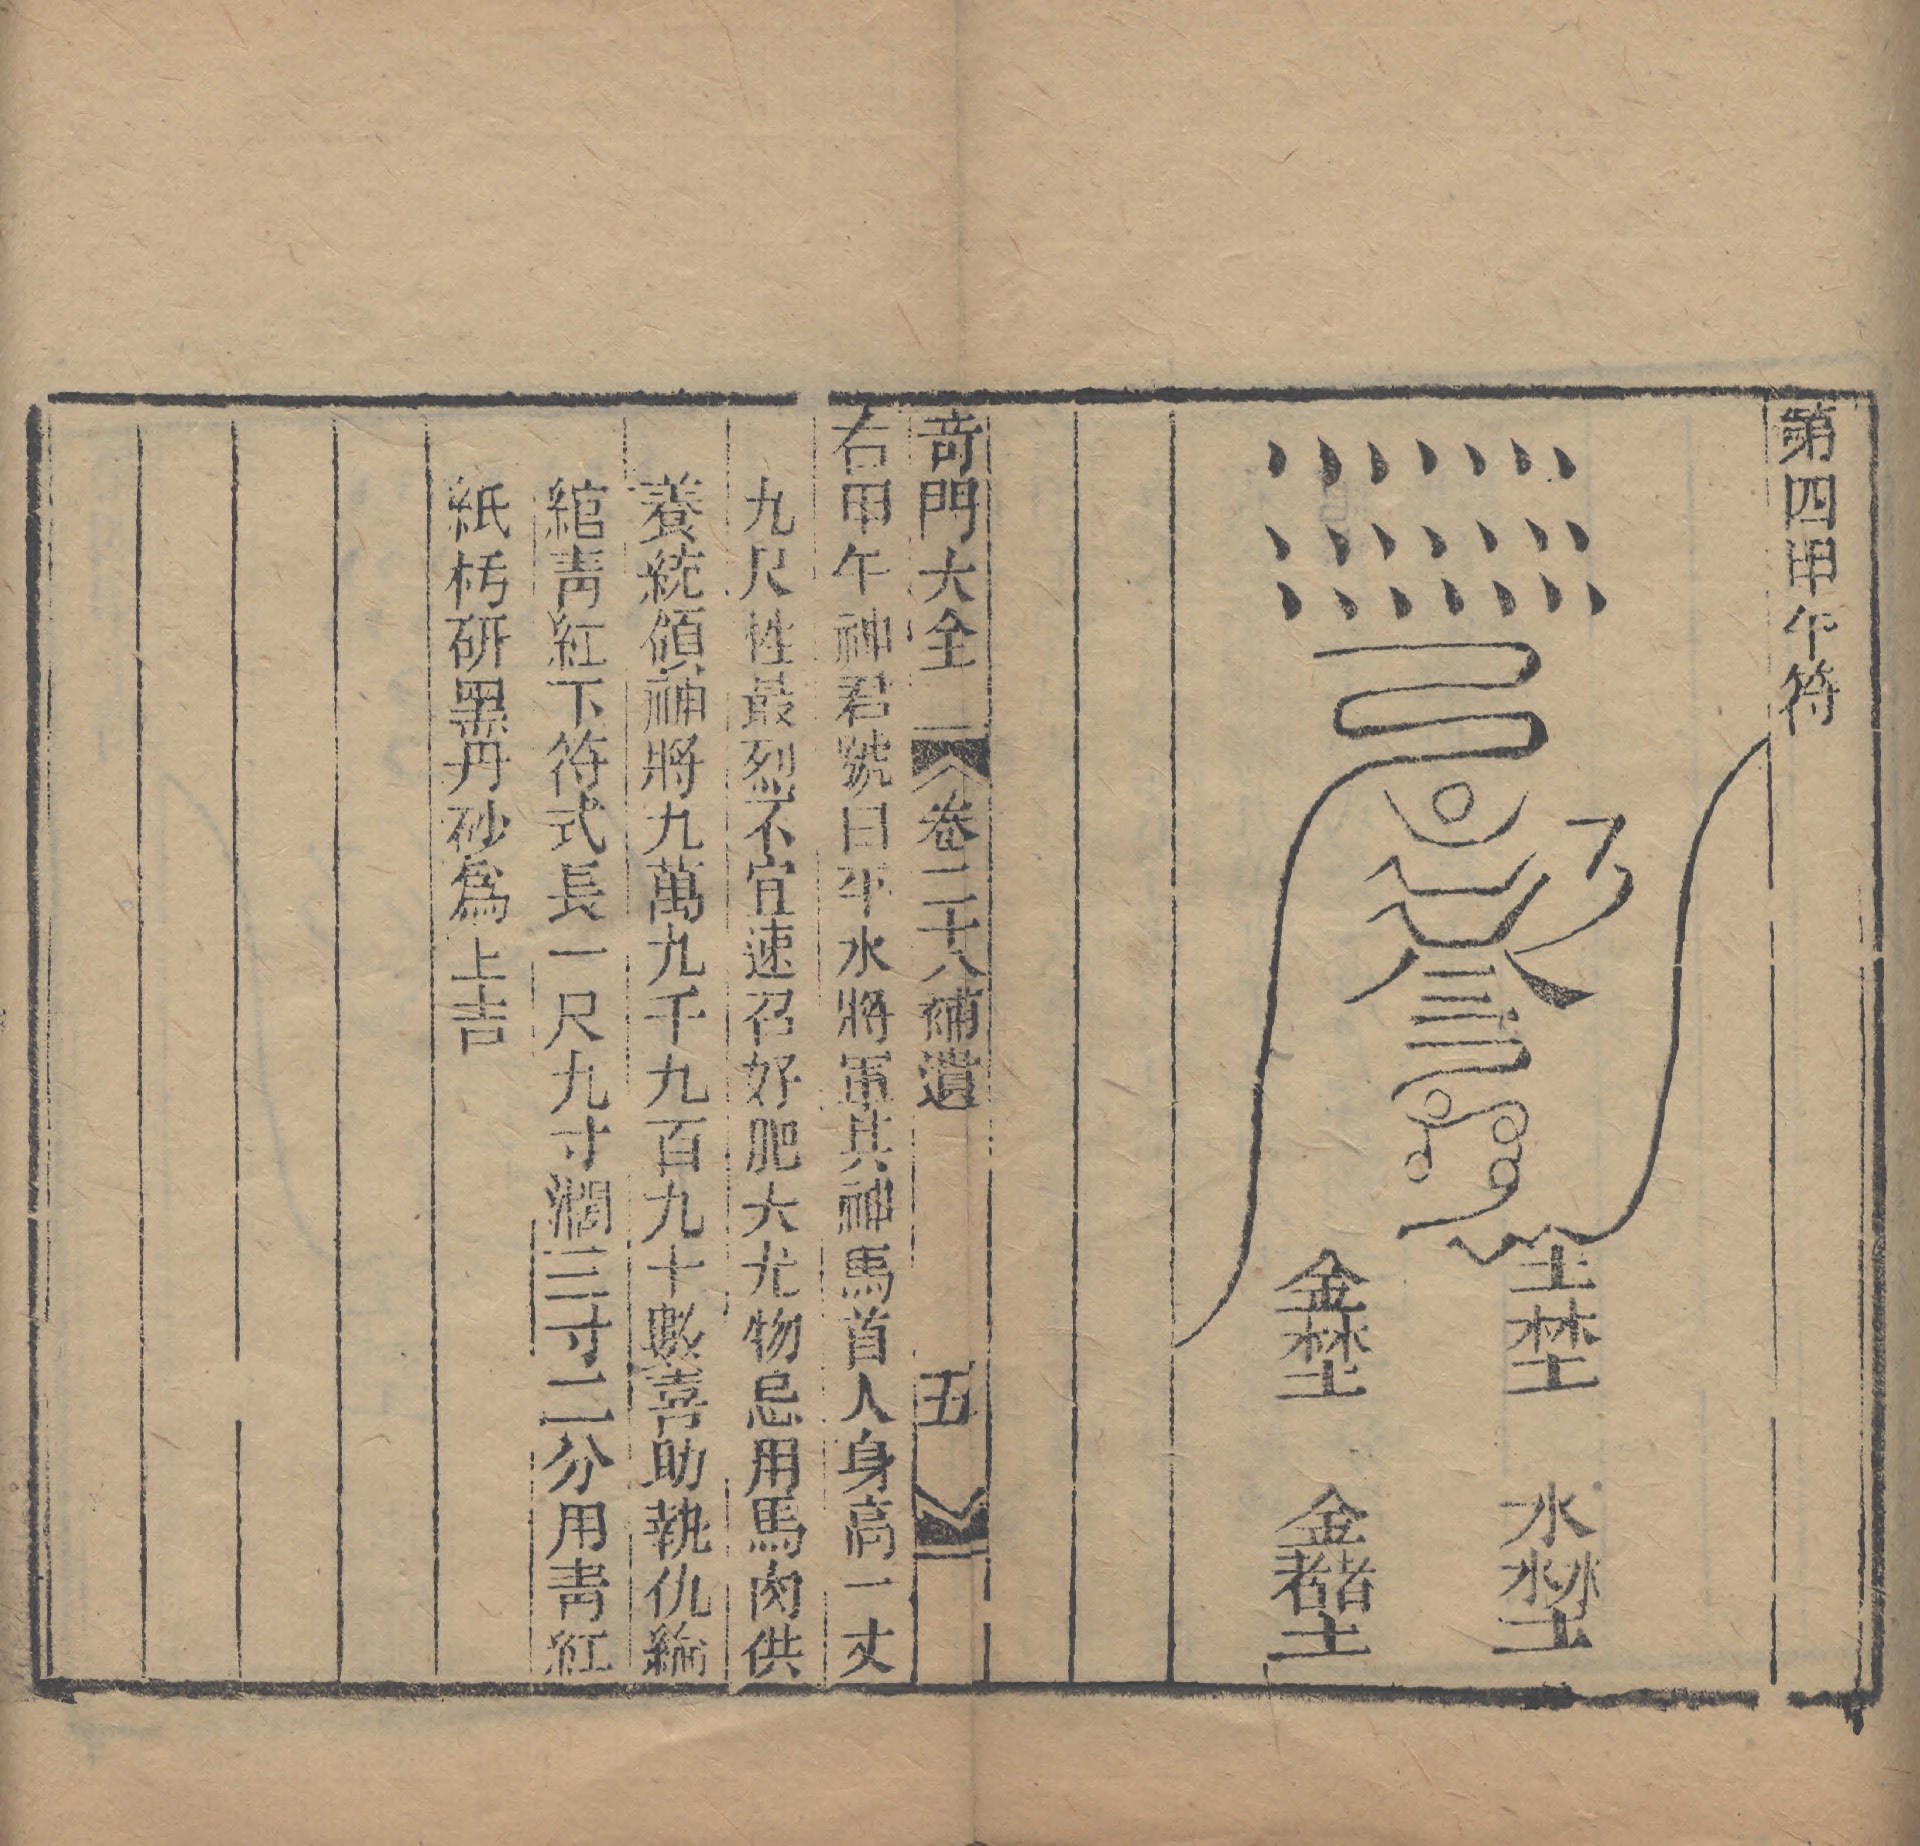 第四甲午符
竒門大全 卷二十八補遺 五
右甲午神君號曰平水將軍其神馬首人身高一丈
九尺性最烈不宜速召好肥大尤物忌用馬肉供
養統領神將九萬九千九百九十數喜助執仇綸
綰青紅下符式長一尺九寸濶三寸二分用青紅
紙朽研黑丹砂爲上吉